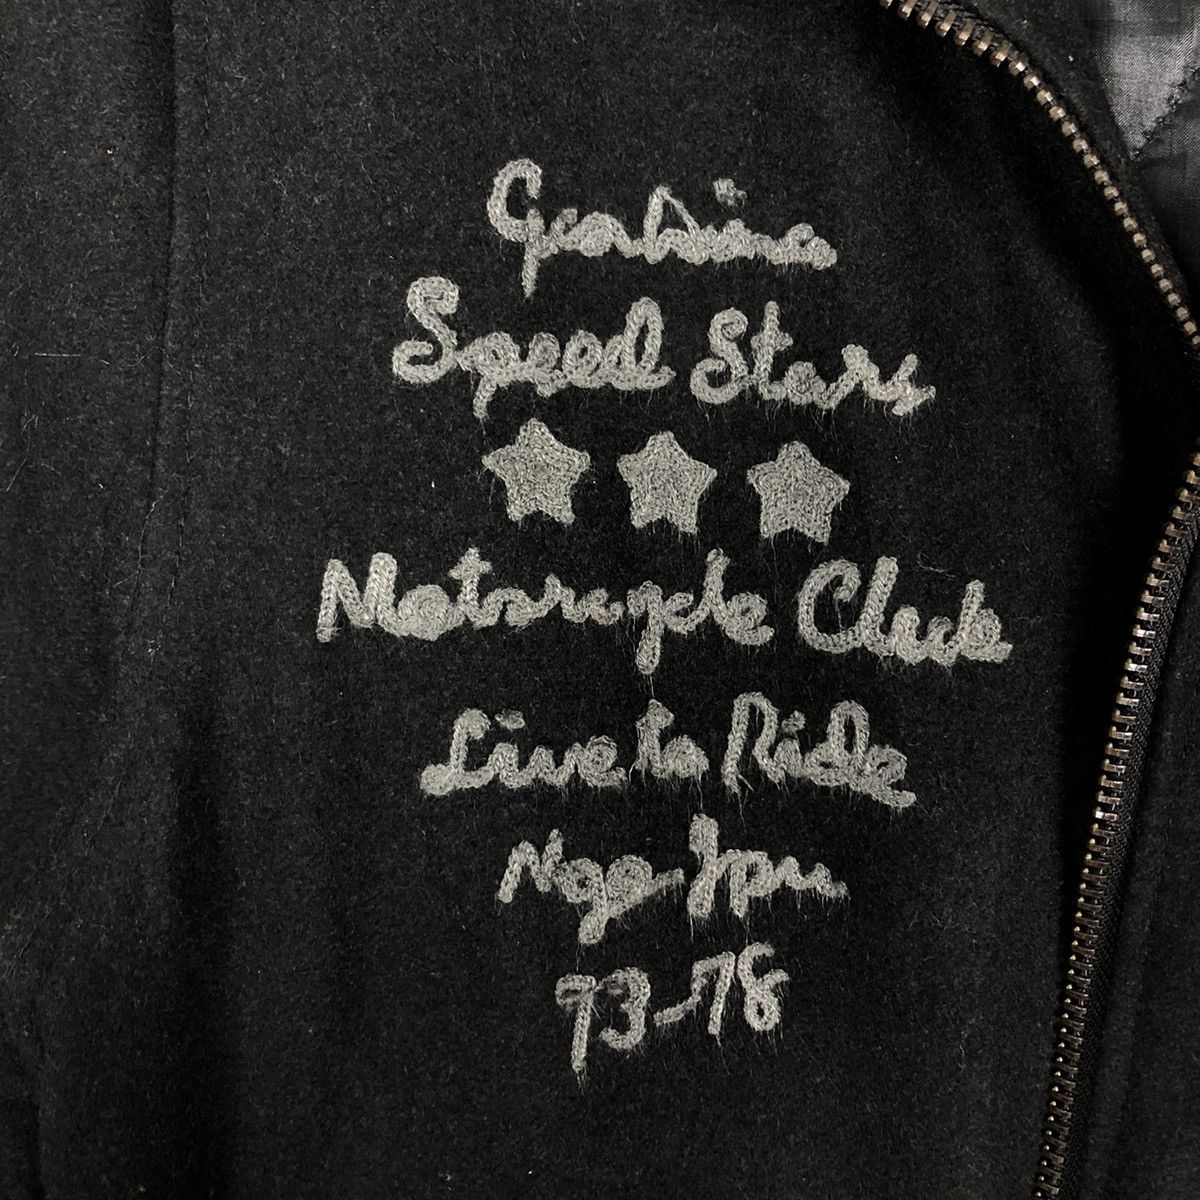 Speed Stars
Motorcycle Club
Live to Ride
Ngo-Jpn
73-78